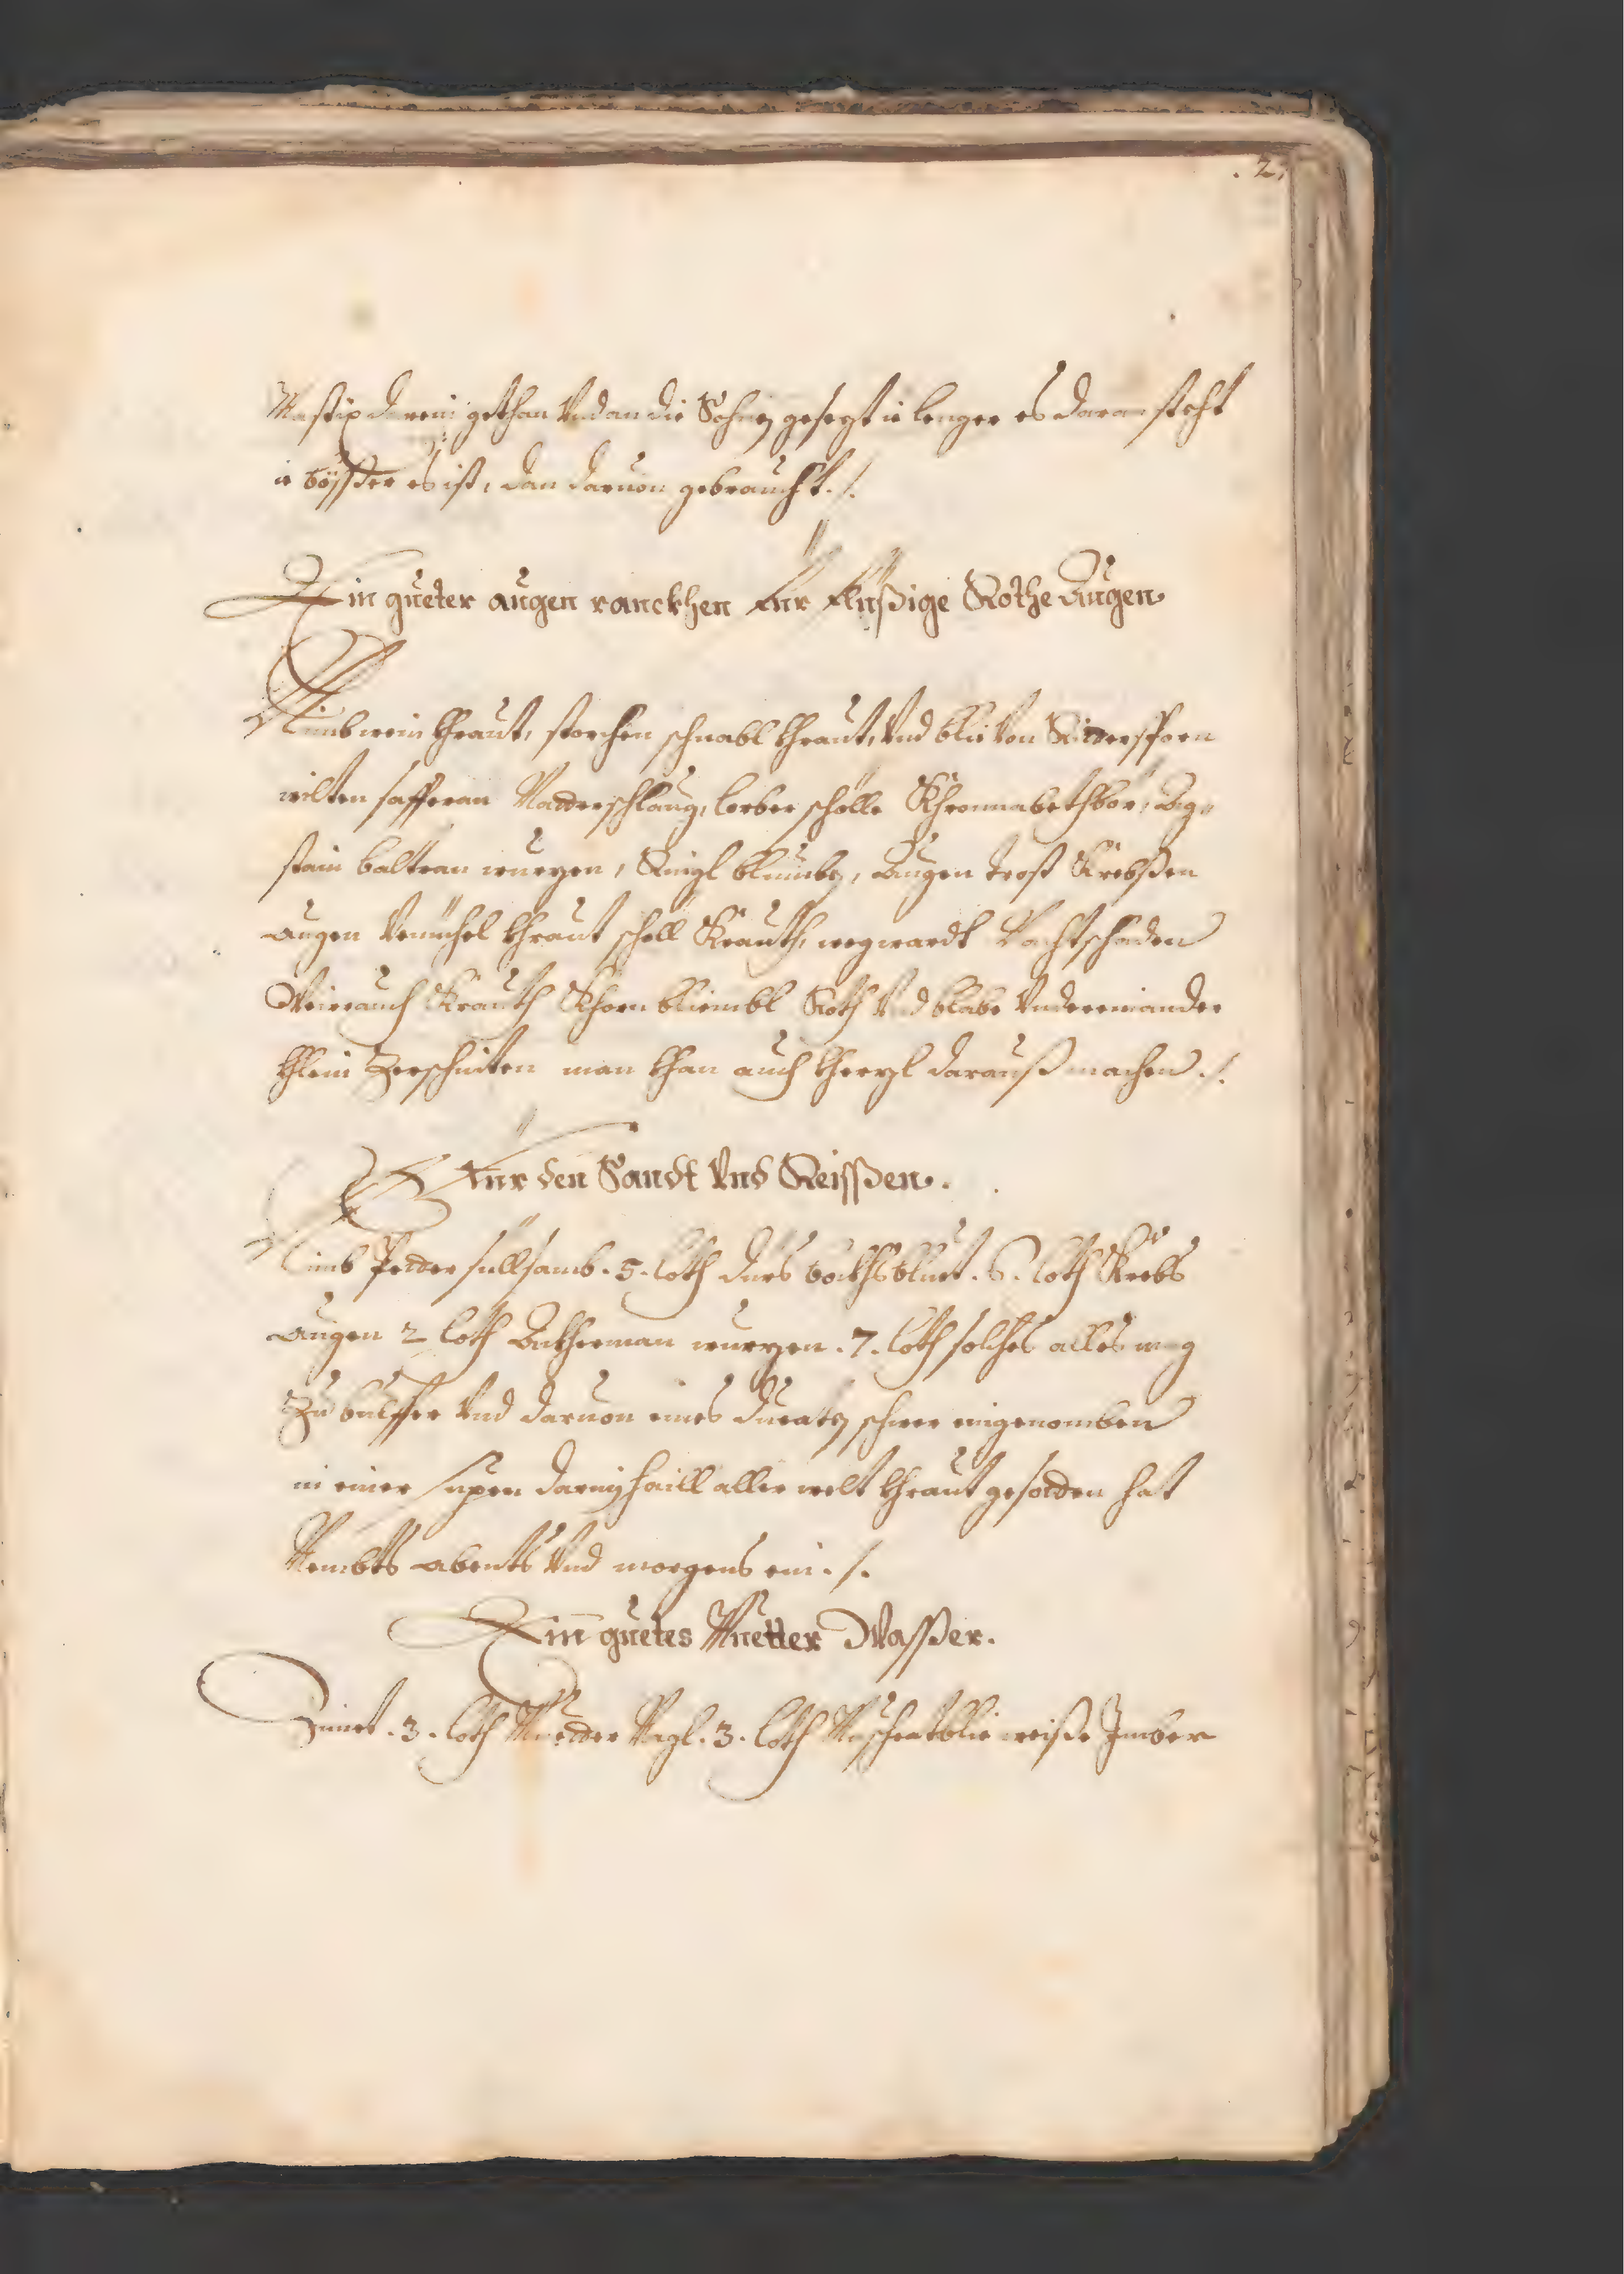 . 2.
Mastix darein gethan Vnd an die Sohnen gesezt ie lenger es daran steht
ie bösser es ist, dan daruon gebraucht ./.
Ein gueter augen ranckhen Für Flüßige Rothe Augen
Nimb wein khraut, storchen schnabl khraut, Vnd blie Von Rittersporn
wilten safferan Natterschlang, lorber schölle Khronnabethbör, Ag=
stain baltran wurzen, Ringl bluimben, Augen trost Krebßen
augen Venichel khraut schell Krauth, wegwardt Nachtschaden
Weirauch Krauth Khorn bliembl Roth Vnd blabe Vndereinander
khlein Zerschniten man khan auch kherzl darauß machen ./.
Für den Sandt Vnd Reissßen .
Nimb Petter sillsamb . 5 . loth dürs bockhsbluet . 6 . loth Krebs
augen 2 loth Ackherman wurzen . 7 . loth solches alles
Zu bulffer Vnd daruon eines ducaten schwer eingenomben
in einer supen darin haill aller welt khraut gesotten hat
Nembts abents Vnd morgens ein ./.
Ein guetes Muetter Wassßer .
Zimet . 3 . loth Muetter Nagl . 3 . loth Muschcatblie weiße Imber